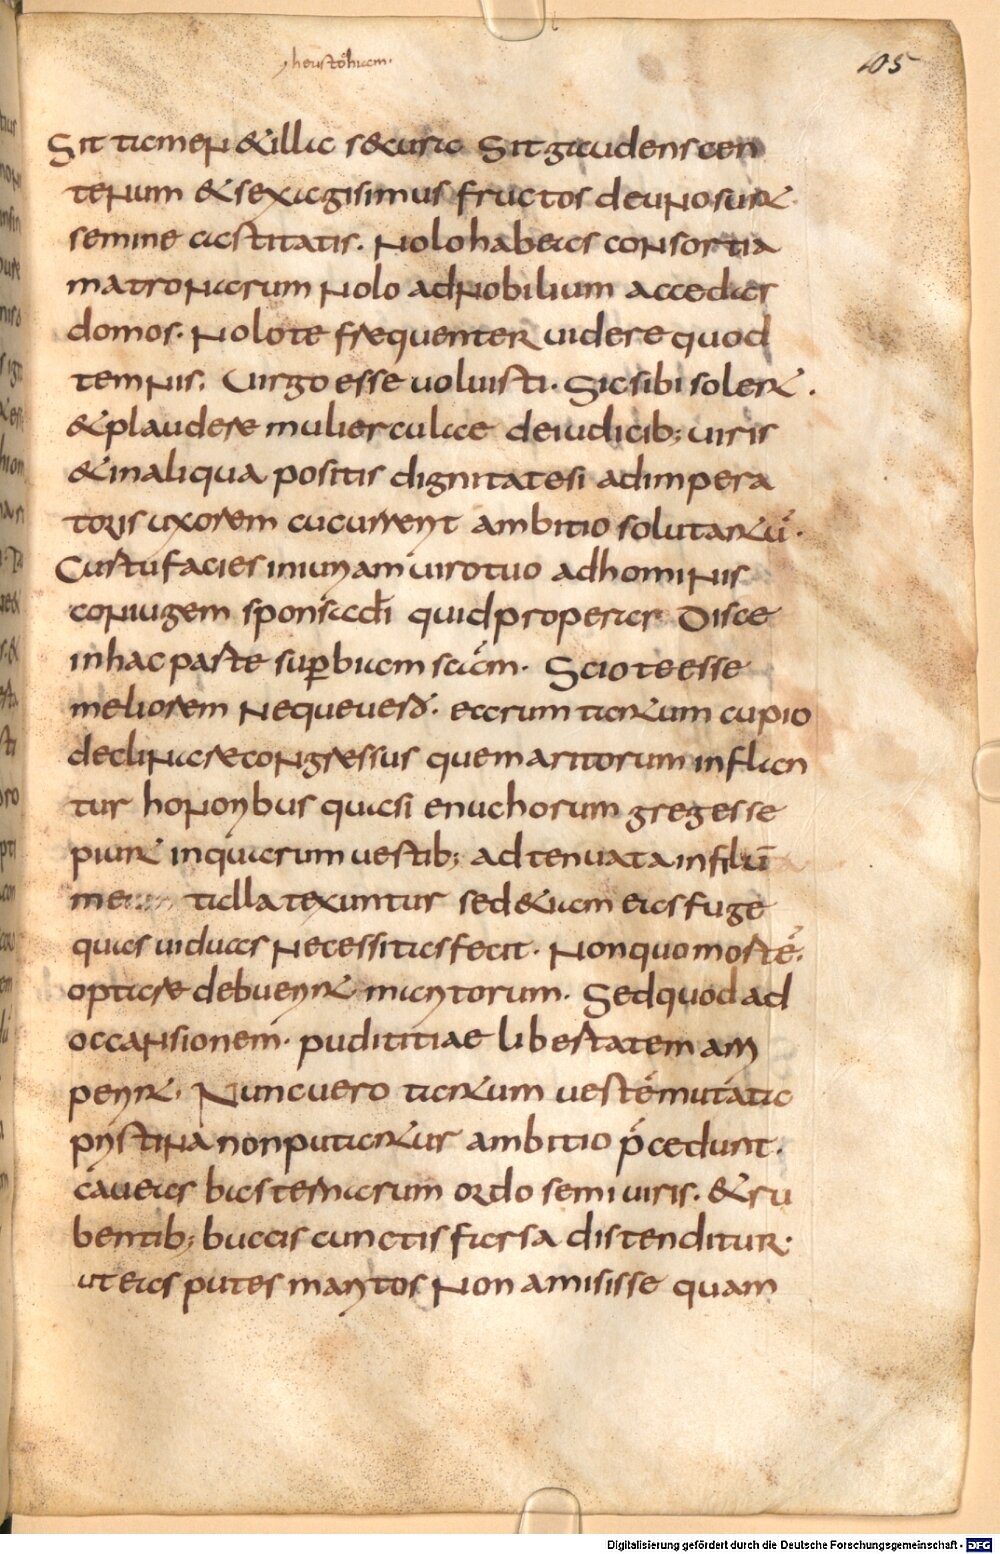 105
Sit tamen & illa secura Sit gaudens cen
tenum & sexagisimus fructos de uno sunt
semine castitatis. Nolo habeas consortia
matronarum Nolo ad nobilium accedas
domos. Nolo te frequenter uidere quod
temnis. Uirgo esse uoluisti. Sic sibi solent.
& plaudere mulierculae de iudicib; uiris
& in aliqua positis dignitate si ad impera
toris uxorem cucurrent ambitio solutantiũ.
Cur tu facies iniuriam uiro tuo ad hominis
coniugem sponsa di quid properas Disce
in hac parte superbiam scãm. Scio te esse
meliorem Neque uero. earum tantum cupio
declinare congressus que maritorum inflan
tur honoribus quasi enuchorum greges se
piunt in quarum uestib; adtenuata in filũ
talla texuntur sed &iam eas fuge
quas uiduas necessitas fecit. Non quo mortẽ.
optare debuerint maritorum. Sed quod ad
occansionem. pudititiae libertatem am
perint. Nunc uero tantum ueste mutata
pristina non putantur ambitio p̃cedunt.
caueas basternarum ordo semiuiris. & ru
bentib; buccis cunctis farsa distenditur.
ut eas putes maritos Non amisisse quam
Digitalisierung gefördert durch die Deutsche Forschungsgemeinschaft - DFG